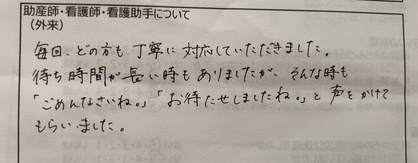 助産師・看護師・看護助手について
（外来）
毎回、どの方も丁寧に対応していただきました。
待ち時間が長い時もありましたが、そんな時も
「ごめんなさいね。」「お待たせしましたね。」と声をかけて
もらいました。